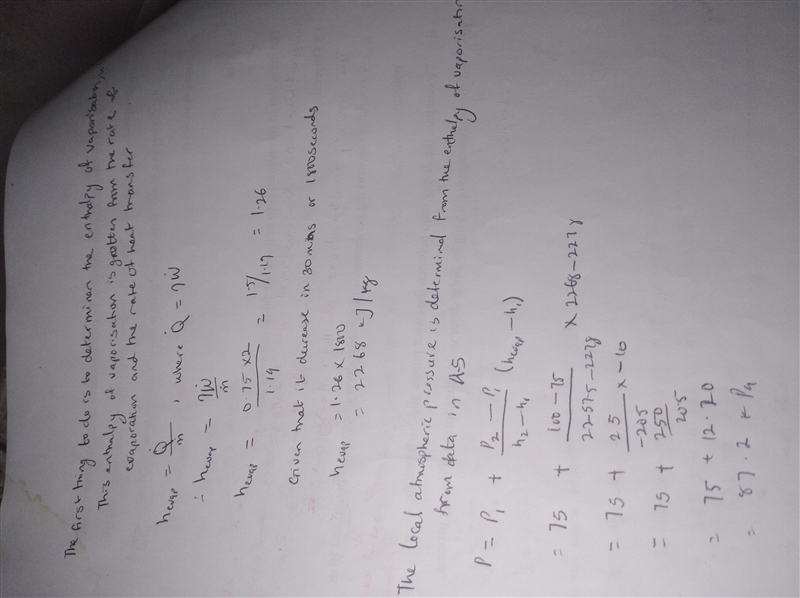 The first thing to do is to determinen the enthalpy of vaporisation,
This enthalpy of vaporisation is gotten from the rate of
evaporation and the rate of heat transfer
hevap = Q̇/ṁ , where Q̇ = ηẆ
∴ hevap = ηẆ/ṁ
hevap = 0.75 x2/1.19 = 1.5/1.19 = 1.26
Given that it decrease in 30 mins or 1800seconds
hevap = 1.26 x 1800
= 2268 kJ/kg
The local atmospheric pressure is determined from the enthalpy of vaporisation
from data in A5
P = P₁ + P₂ - P₁/h₂ - h₁ (hevap - h₁)
= 75 + 100 - 75/2257.5 - 2278 x 2268 - 2278
= 75 + 25/-20.5 x -10
= 75 + 250/20.5
= 75 + 12.20
= 87.2 kPa